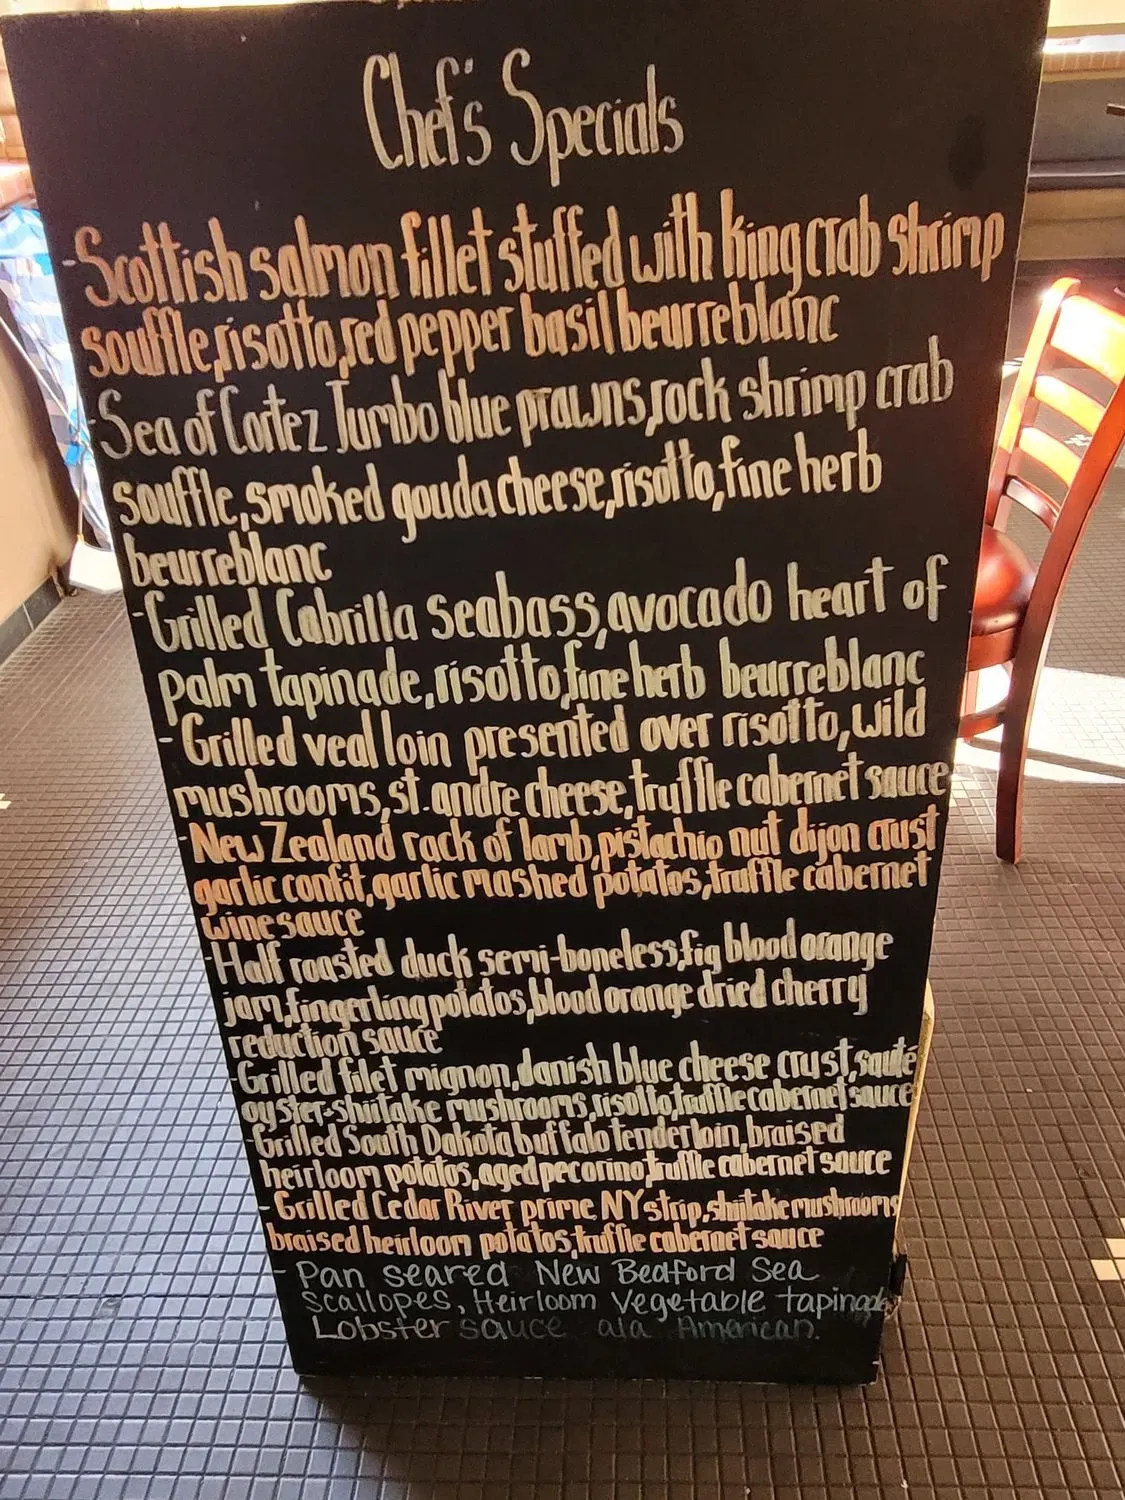 Chef's Specials
-Scottish salmon fillet stuffed with king crab shrimp
souffle, risotto, red pepper basil beurreblanc
-Sea of Cortez Jumbo blue prawns, rock shrimp crab
souffle, smoked gouda cheese, risotto, fine herb
beurreblanc
-Grilled Cabrilla seabass, avocado heart of
palm tapinade, risotto, fine herb beurreblanc
-Grilled veal loin presented over risotto, wild
mushrooms, st. andre cheese, truffle cabernet sauce
-New Zealand rack of lamb, pistachio nut dijon crust
garlic confit, garlic mashed potatos, truffle cabernet
wine sauce
-Half roasted duck semi-boneless, fig blood orange
jam, fingerling potatos, blood orange dried cherry
reduction sauce
-Grilled filet mignon, danish blue cheese crust, sauté
oyster-shiitake mushrooms, risotto, truffle cabernet sauce
-Grilled South Dakota buffalo tenderloin, braised
heirloom potatos, aged pecorino, truffle cabernet sauce
-Grilled Cedar River prime NY strip, shiitake mushrooms
braised heirloom potatos, truffle cabernet sauce
- Pan seared New Bedford Sea
scallopes, Heirloom Vegetable tapinade,
Lobster sauce ala American.